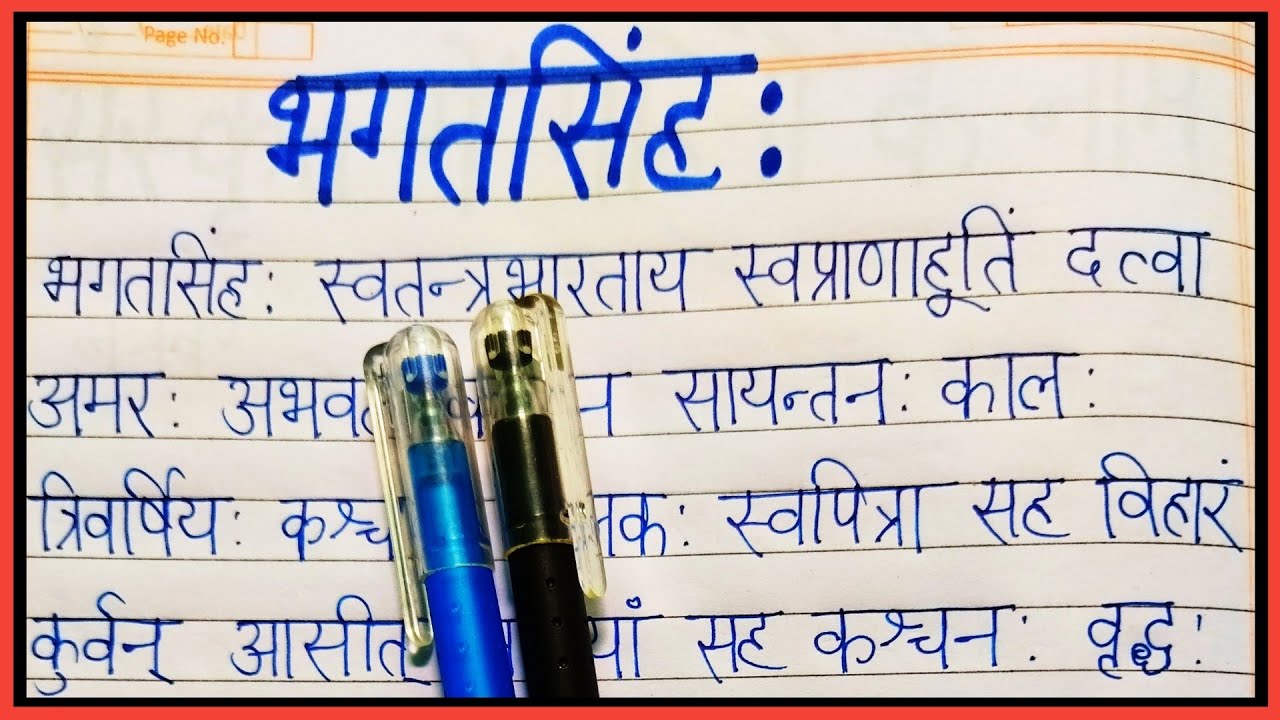 Page No.
भगतसिंह:
भगतसिंह: स्वतन्त्रभारताय स्वप्राणाहूतिं दत्वा
अमर: सायन्तन: काल:
त्रिवर्षिय: स्वपित्रा सह विहारं
कुर्वन् आसीत् सह कश्चन: वृद्ध: